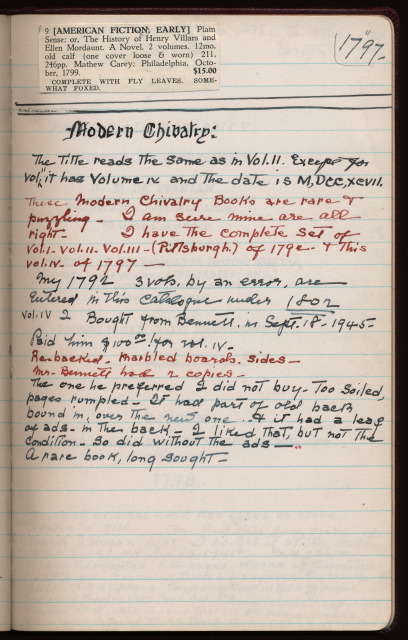 9 [AMERICAN FICTION; EARLY] Plain
Sense: or, The History of Henry Villars and
Ellen Mordaunt. A Novel. 2 volumes. 12mo.
old calf (one cover loose & worn) 211,
246pp. Mathew Carey: Philadelphia, Octo-
ber, 1799. $15.00
COMPLETE WITH FLY LEAVES. SOME-
WHAT FOXED.
1797-
Modern Chivalry:
The Title reads the same as in Vol. II. Except for
Vol, it has Volume IV and the date is M,DCC,XCVII.
These Modern Chivalry Books are rare &
puzzling - I am sure mine are all
right - I have the complete set of
Vol.I- Vol.II- Vol.III-(Pittsburgh) of 1792- & This
vol.IV- of 1797 —
My 1792 3 vols. by an error, are
Entered in this Catalogue under 1802
Vol. IV I Bought from Bennett, in Sept. 18- 1945-
Paid him $100.00! for vol. IV-
Re-backed - marbled boards. sides -
Mr. Bennett had 2 copies -
The one he preferred I did not buy- Too soiled,
pages rumpled - It had part of old back
bound in, over the new one .. & it had a leaf
of ads- in the back - I liked that, but not the
Condition - So did without the ads —"
A rare book, long sought -